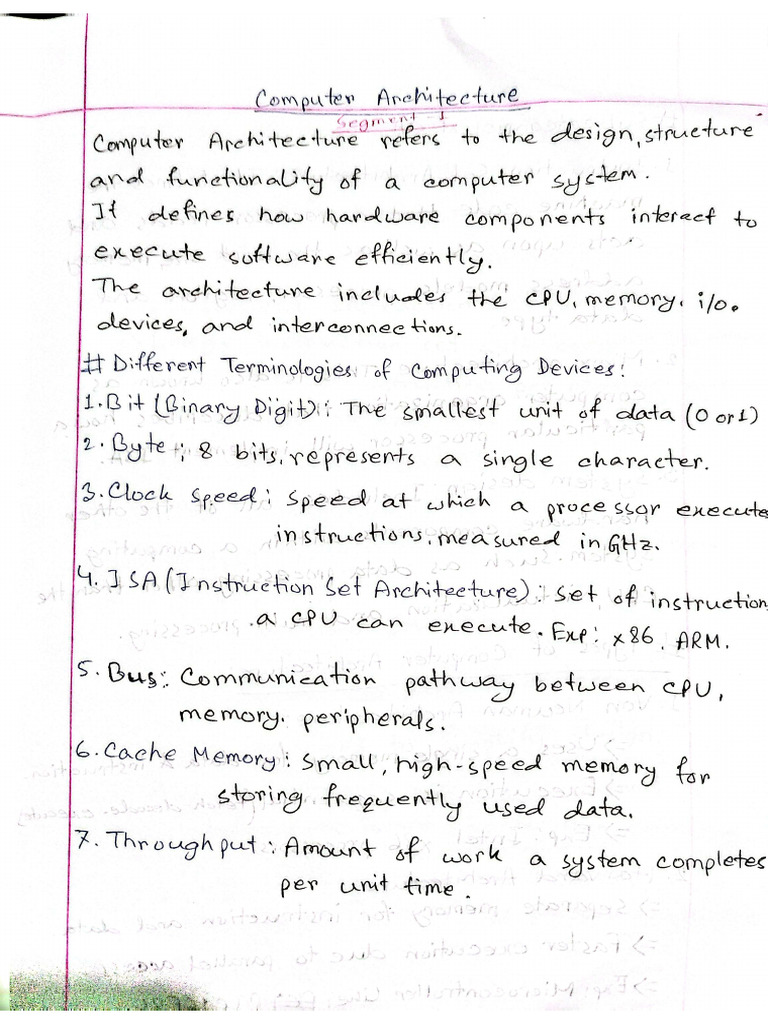 Computer Architecture
Segment-1
Computer Architecture refers to the design, structure
and functionality of a computer system.
It defines how hardware components interact to
execute software efficiently.
The architecture includes the CPU, memory, i/o.
devices, and interconnections.
# Different Terminologies of Computing Devices:
1. Bit (Binary Digit): The smallest unit of data (0 or 1)
2. Byte: 8 bits, represents a single character.
3. Clock Speed: Speed at which a processor execute
instructions, measured in GHz.
4. ISA (Instruction Set Architecture): Set of instruction
a CPU can execute. Exp: x86, ARM.
5. Bus: Communication pathway between CPU,
memory. peripherals.
6. Cache Memory: Small, high-speed memory for
storing frequently used data.
7. Throughput: Amount of work a system completes
per unit time.